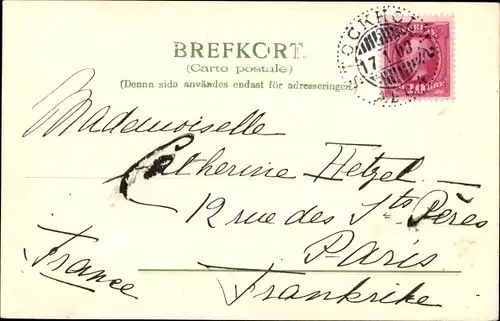 BREFKORT.
(Carto postale)
(Denna sida användes endast för adresseringen.)
STOCKHOLM
17.1.03
Mademoiselle
Catherine Hetzel
12 rue des Sts Pères
Paris
France
Frankrike